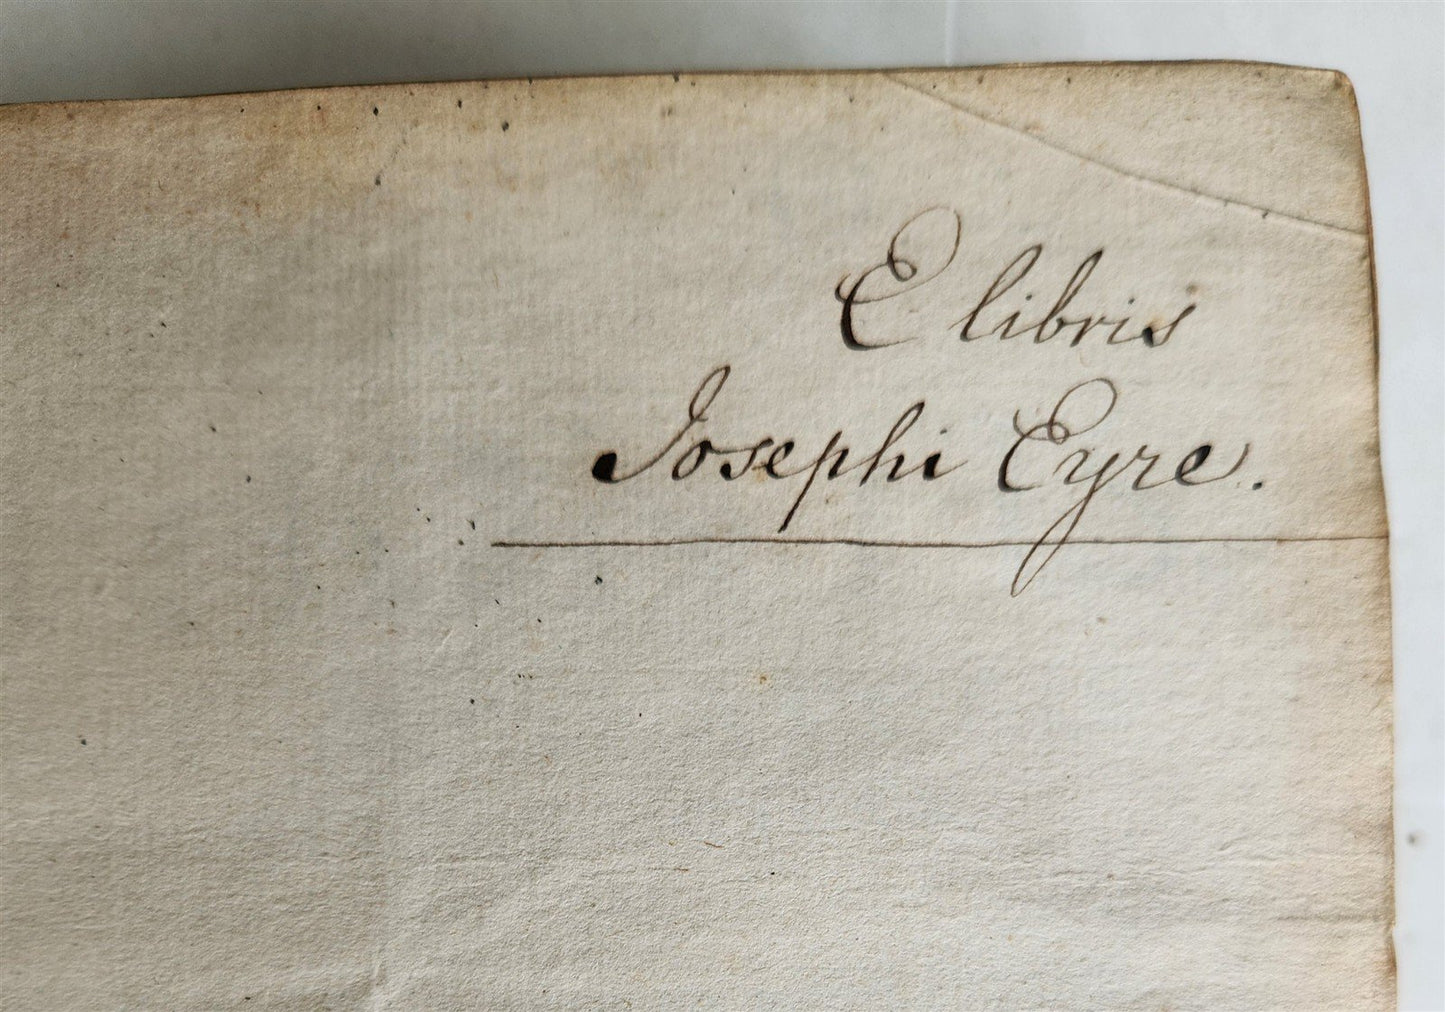 E libris
Josephi Eyre.